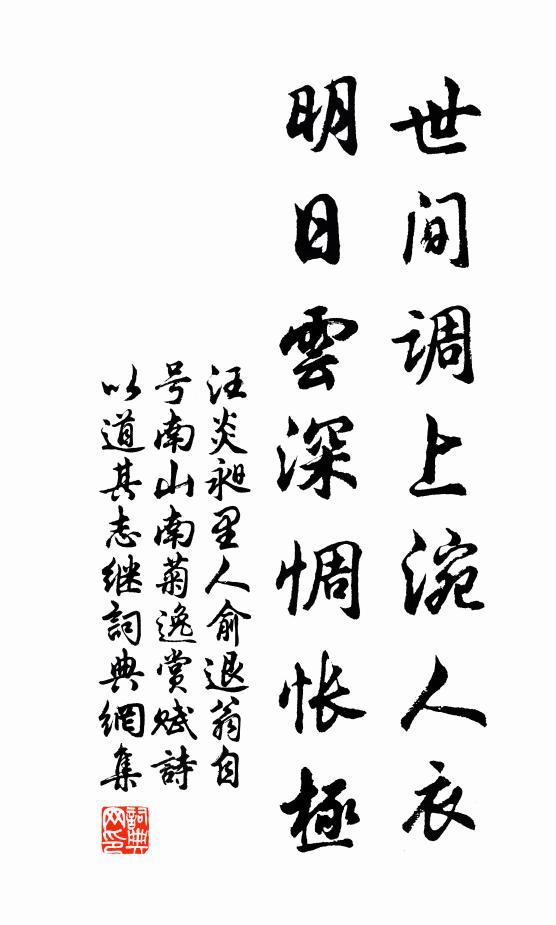 世间调上涴人衣
明日雲深惆怅極
汪炎昶里人俞退翁自
号南山南菊逸赏赋詩
以道其志继詞典網集
詞典
网印